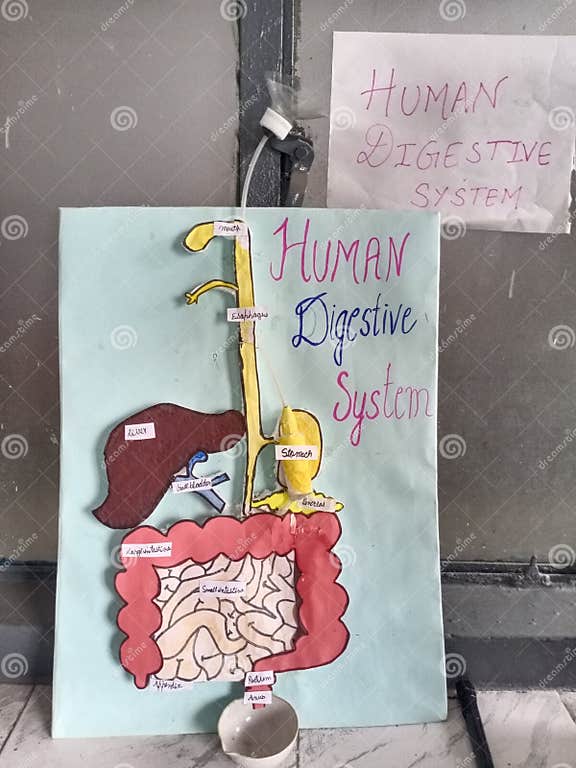 HUMAN
DIGESTIVE
SYSTEM
HUMAN
Digestive
System
Mouth
Esophagus
Liver
Stomach
Gall bladder
Pancreas
Large intestine
Small intestine
Appendix
Rectum
Anus
dreamstime